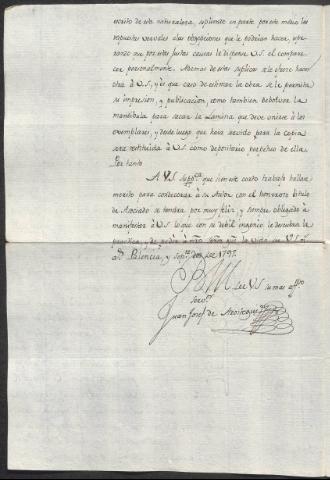 escrito de esta naturaleza, supliendo en parte por este medio las
respuestas verbales a las objeciones que le podrian hacer, espe-
rando que por estas justas causas le dispense V.S. el compare-
cer personalmente. Ademas de estas suplicas se le ofrece hacer
otra à V.S. y es que caso de estimar la obra se le permita
su impresion, y publicacion, como tambien debolver la
mandibula para sacar la Lamina que debe unirse à los
exemplares, y desde luego que haia servido para la copia
será restituida à V.S. como depositario perpetuo de ella.
Por tanto
A V.S. Supp.ca que si en este corto trabajo hallare
merito para condecorar a su Autor con el honroso titulo
de Asociado se tendra por muy feliz, y siempre obligado à
manifestar à V.S. lo que con su debil ingenio le descubra la
practica; y de pedir à nro Señor que la vida de V.S. m.s
a.s Palencia, y Sep.re dos de 1797.
de V.S. su mas aff.to
Serv.or
Juan Josef de